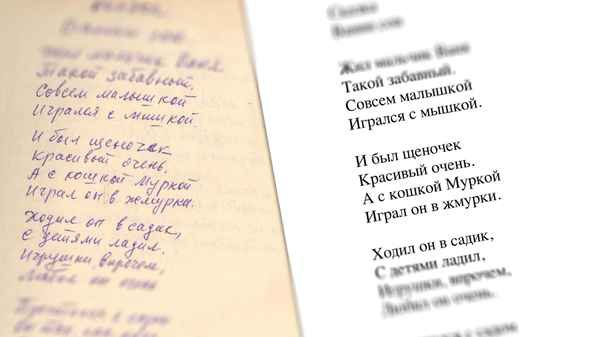 Такой забавный.
Совсем малышкой
Игрался с мышкой.
И был щеночек
Красивый очень.
А с кошкой Муркой
Играл он в жмурки.
Ходил он в садик,
С детями ладил.
Игрушки, впрочем,
Любил он очень
Сказка
Ванин сон
Жил мальчик Ваня
Такой забавный.
Совсем малышкой
Игрался с мышкой.
И был щеночек
Красивый очень.
А с кошкой Муркой
Играл он в жмурки.
Ходил он в садик,
С детями ладил,
Игрушки, впрочем,
Любил он очень.